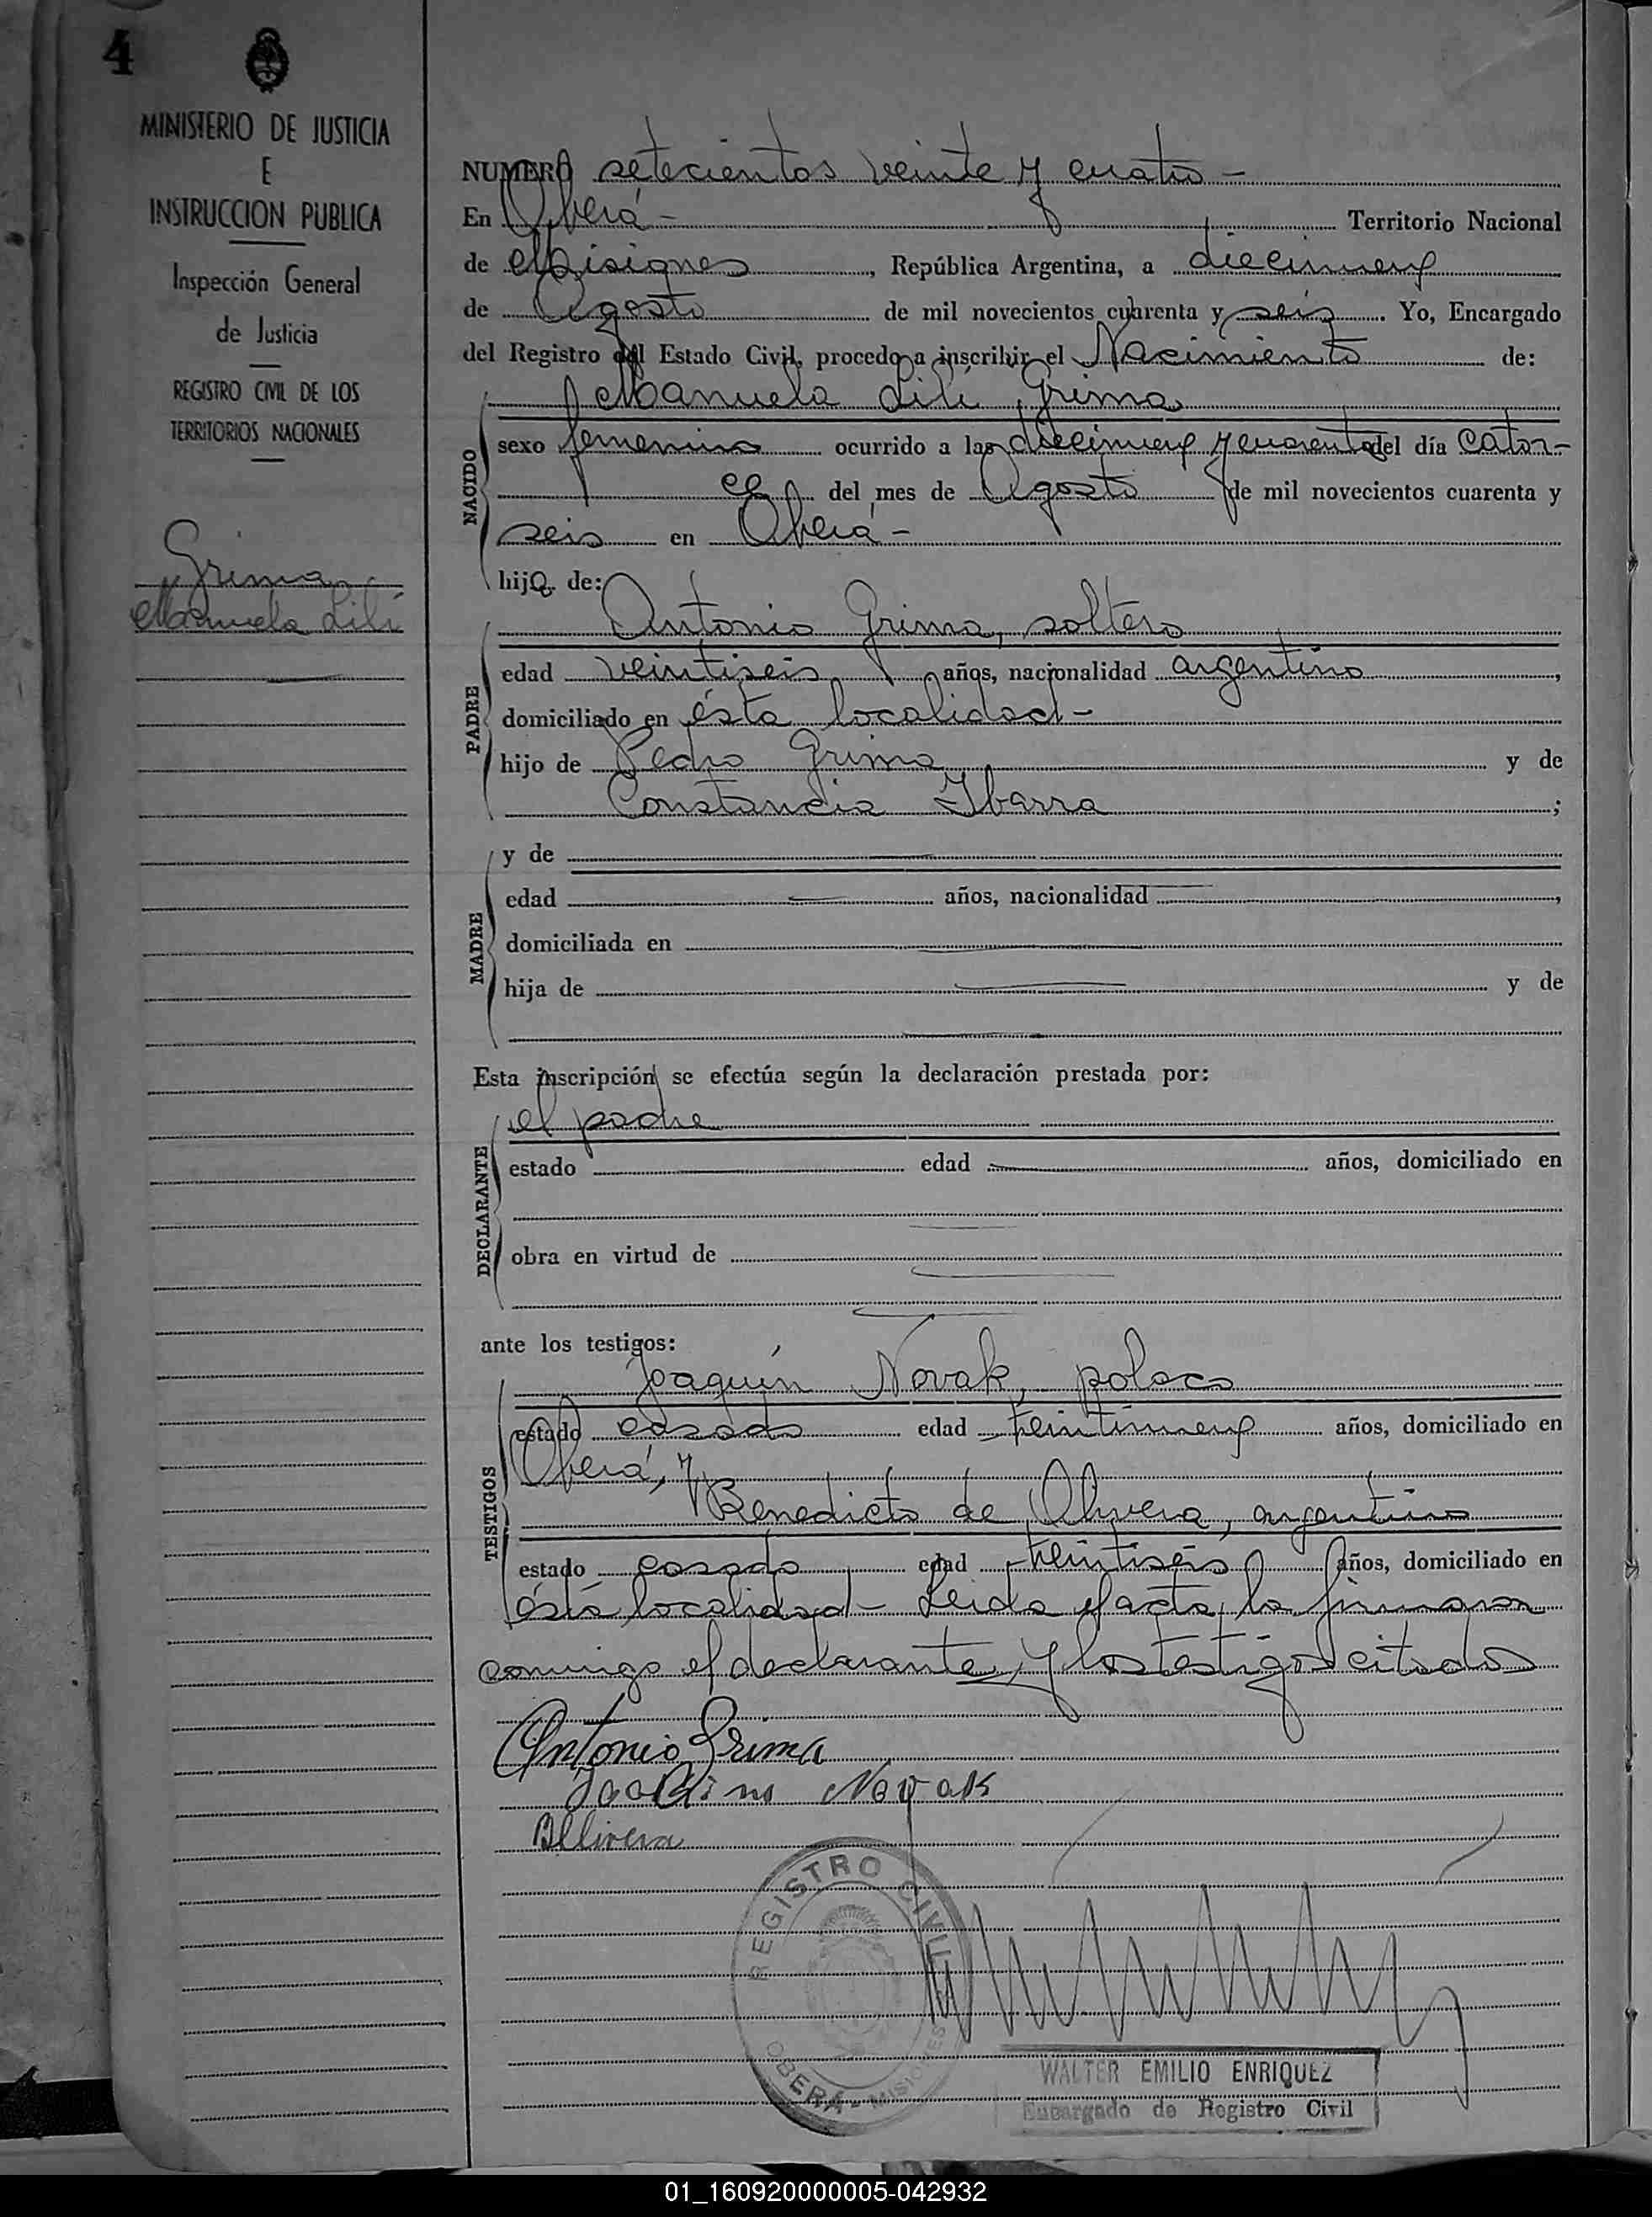 4
MINISTERIO DE JUSTICIA
E
INSTRUCCION PUBLICA
Inspección General
de Justicia
REGISTRO CIVIL DE LOS
TERRITORIOS NACIONALES
Grima
Manuela Lilí
NUMERO setecientos veinte y cuatro -
En Oberá - Territorio Nacional
de Misiones, República Argentina, a diecinueve
de Agosto de mil novecientos cuarenta y seis. Yo, Encargado
del Registro del Estado Civil, procedo a inscribir el Nacimiento de:
NACIDO
Manuela Lilí Grima
sexo femenino ocurrido a las diecinueve y cuarenta del día cator-
ce del mes de Agosto de mil novecientos cuarenta y
seis en Oberá -
hija de:
PADRE
Antonio Grima, soltero
edad veintiseis años, nacionalidad argentino,
domiciliado en ésta localidad -
hijo de Pedro Grima y de
Constancia Ibarra;
MADRE
y de
edad años, nacionalidad,
domiciliada en
hija de y de
Esta inscripción se efectúa según la declaración prestada por:
DECLARANTE
el padre
estado edad años, domiciliado en
obra en virtud de
ante los testigos:
TESTIGOS
Joaquín Novak, polaco
estado casado edad años, domiciliado en
Oberá, y
Benedicto de Olivera, argentino
estado casado edad años, domiciliado en
ésta localidad - Leida el acta, la firmaron
conmigo el declarante y los testigos citados
Antonio Grima
Novak
BOlivera
REGISTRO CIVIL
OBERÁ - MISIONES
WALTER EMILIO ENRIQUEZ
Encargado de Registro Civil
01_160920000005-042932